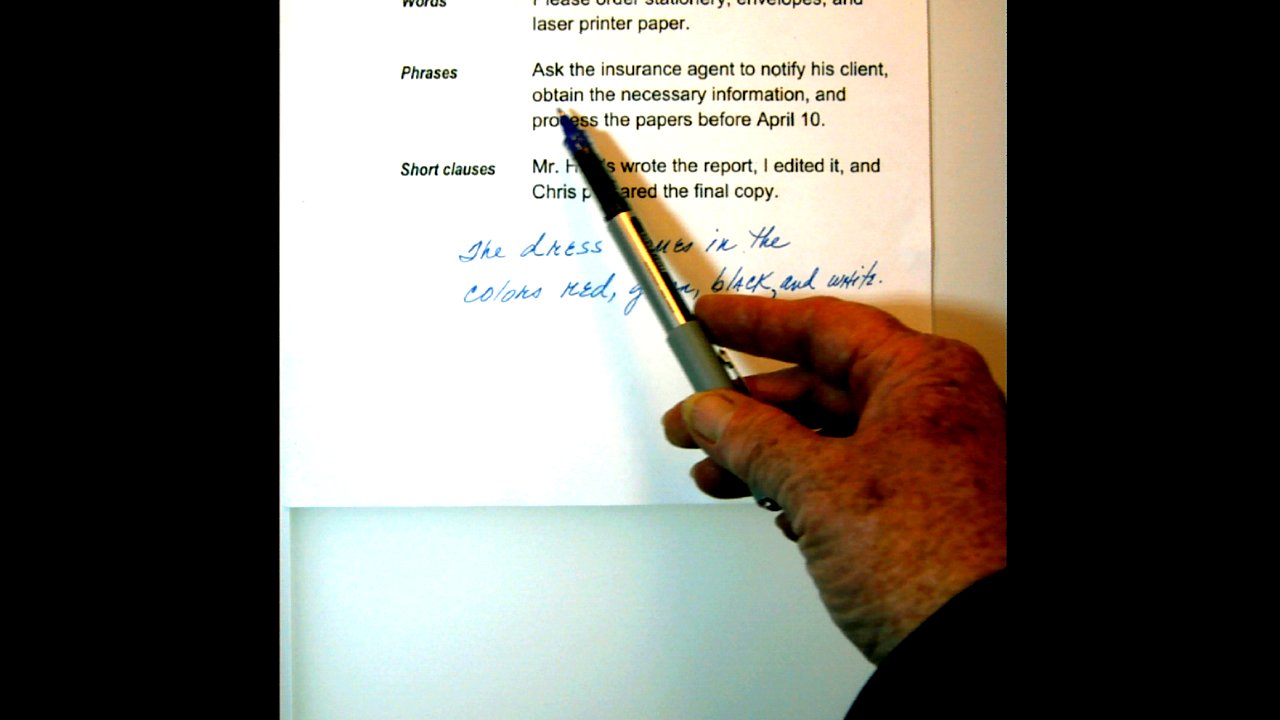 Words Please order stationery, envelopes, and
laser printer paper.
Phrases Ask the insurance agent to notify his client,
obtain the necessary information, and
process the papers before April 10.
Short clauses Mr. wrote the report, I edited it, and
Chris prepared the final copy.
The dress in the
colors red, black, and white.